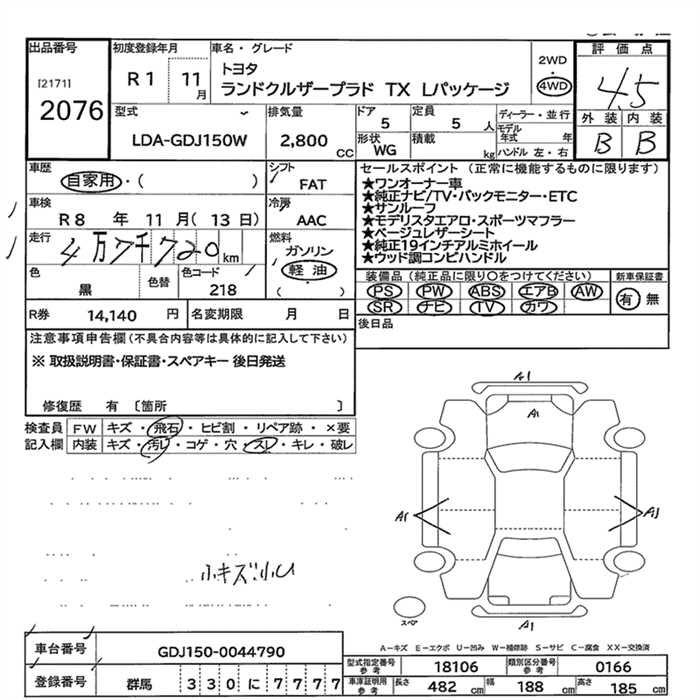 出品番号
[2171]
2076
初度登録年月
R1 11月
車名・グレード
トヨタ
ランドクルザープラド TX Lパッケージ
2WD
・
4WD
評価点
4.5
外装 内装
B B
型式
LDA-GDJ150W
排気量
2,800 CC
ドア
5
定員
5 人
形状
WG
積載
kg
ディーラー・並行
モデル年式 年
ハンドル 左・右
車歴
自家用・( )
シフト
FAT
車検
R8 年 11 月( 13 日)
冷房
AAC
走行
4万7千720km
燃料
ガソリン
軽油
( )
色
黒
色替
色コード
218
R券 14,140 円
名変期限 月 日
セールスポイント(正常に機能するものに限ります)
★ワンオーナー車
★純正ナビ/TV・バックモニター・ETC
★サンルーフ
★モデリスタエアロ・スポーツマフラー
★ベージュレザーシート
★純正19インチアルミホイール
★ウッド調コンビハンドル
装備品(純正品に限り○をつけてください)
PS PW ABS エアB AW
SR ナビ TV カワ
新車保証書
有 無
後日品
注意事項申告欄(不具合内容等は具体的に記入して下さい)
※ 取扱説明書・保証書・スペアキー 後日発送
修復歴 有 〔箇所 〕
検査員記入欄
FW キズ・飛石・ヒビ割・リペア跡・×要
内装 キズ・汚れ・コゲ・穴・スレ・キレ・破レ
A1
A1
A1
A1
A1
小キズ小U
スペア
A-キズ E-エクボ U-凹み W-補修跡 S-サビ C-腐食 XX-交換済
車台番号
GDJ150-0044790
登録番号
群馬 330 に 7777
型式指定番号参考
18106
類別区分番号参考
0166
車庫証明用参考
長さ 482 cm
幅 188 cm
高さ 185 cm